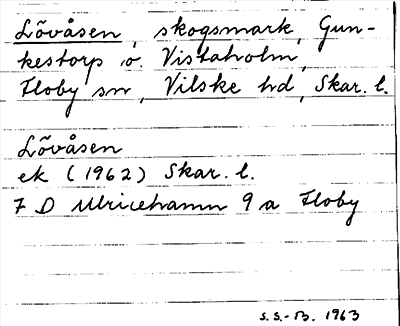 Lövåsen, skogsmark, Gun-
kestorp o. Vistaholm,
Floby sn, Vilske hd, Skar. l.
Lövåsen
ek (1962) Skar. l.
7 D Ulricehamn 9 a Floby
S.S.-B. 1963